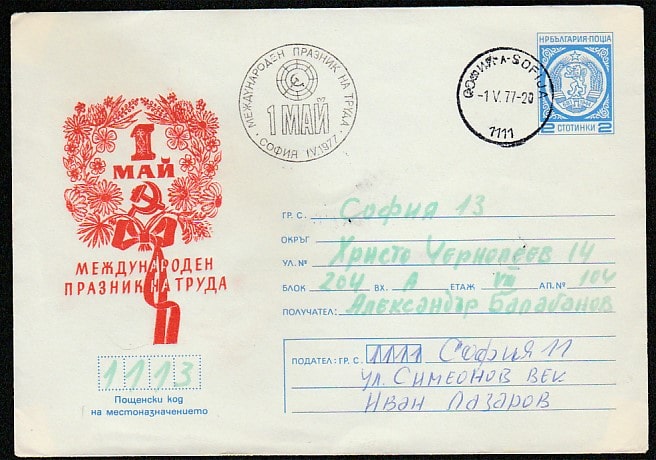 НР БЪЛГАРИЯ·ПОЩА
2 СТОТИНКИ 2
СОФИЯ-А-SOFIJA
-1.V.77-20
1111
МЕЖДУНАРОДЕН ПРАЗНИК НА ТРУДА
1 МАЙ
· СОФИЯ 1.V.1977 ·
1
МАЙ
МЕЖДУНАРОДЕН
ПРАЗНИК НА ТРУДА
ГР. С. София 13
ОКРЪГ
УЛ. № Христо Чернопеев 14
БЛОК 204 ВХ. А ЕТАЖ VIII АП. № 104
ПОЛУЧАТЕЛ: Александър Балабанов
ПОДАТЕЛ: ГР. С. 1111 София 11
ул. Симеонов век
Иван Лазаров
1113
Пощенски код
на местоназначението